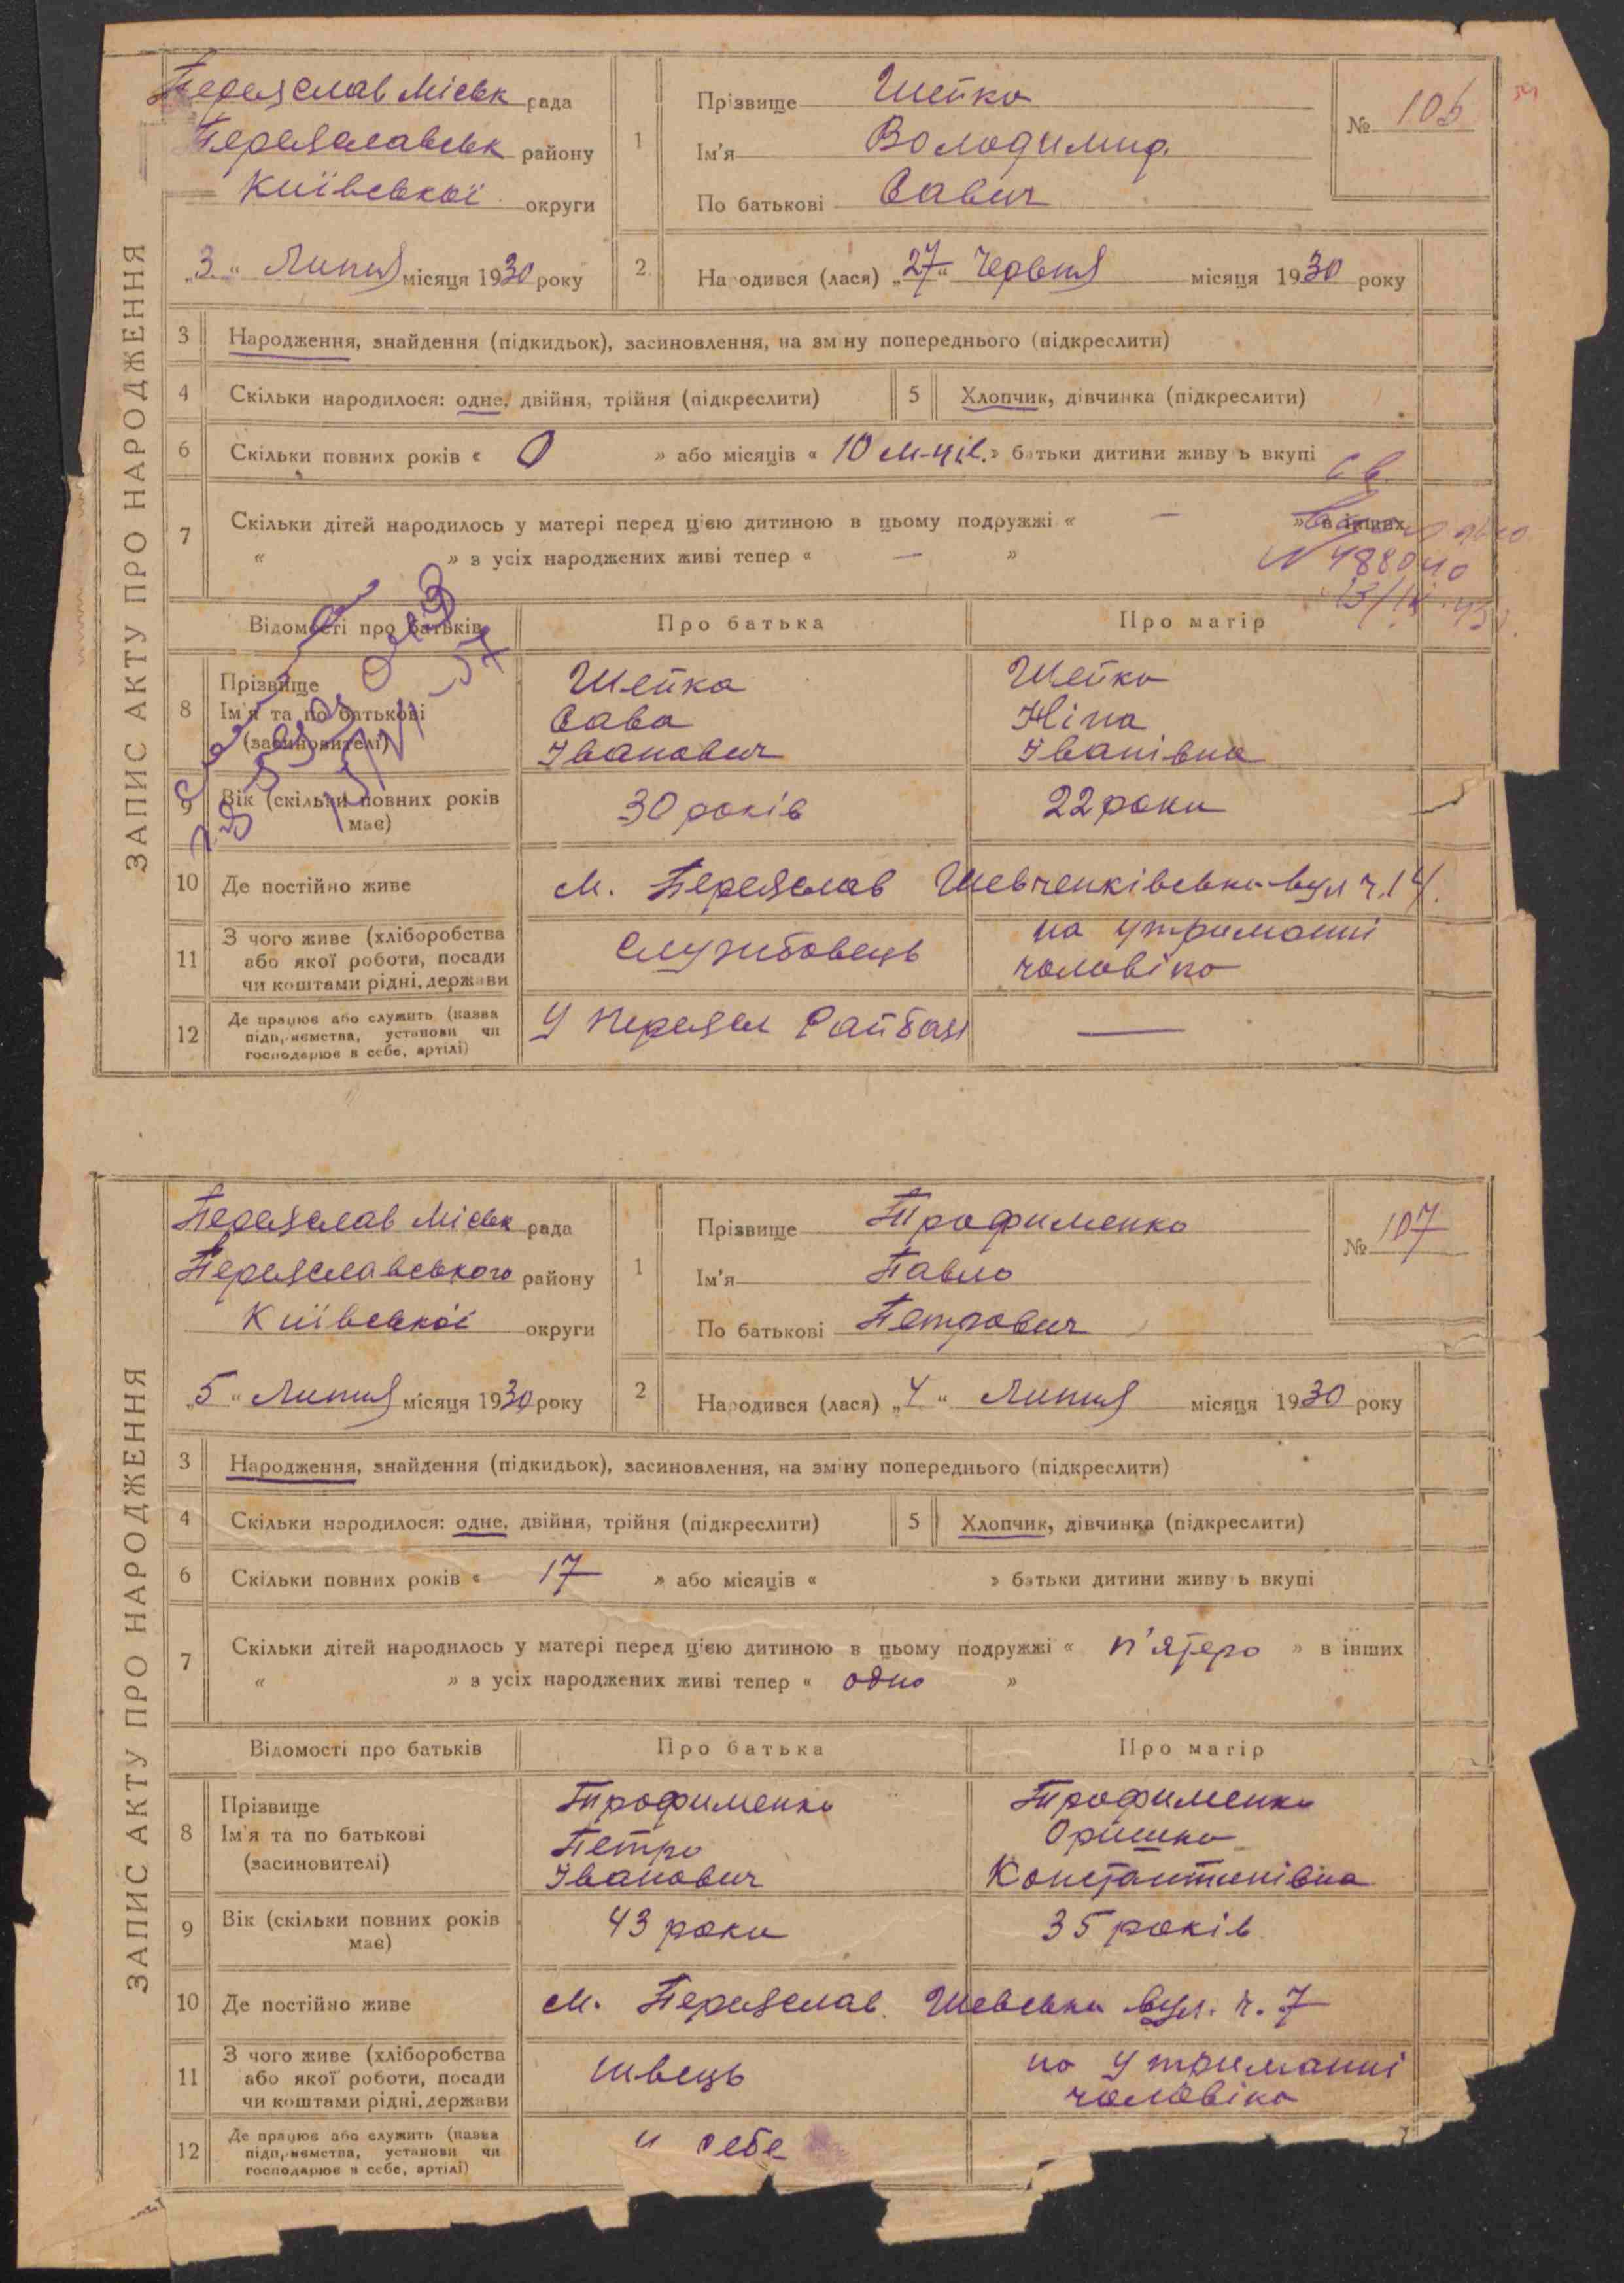 ЗАПИС АКТУ ПРО НАРОДЖЕННЯ
Переяслав Міськ рада
Переяславськ району
Київської округи
„3“ Липня місяця 1930 року
1 Прізвище Шейко
Ім'я Володимир
По батькові Савич
№ 106
2 Народився (лася) „27“ Червня місяця 1930 року
3 Народження, знайдення (підкидьок), засиновлення, на зміну попереднього (підкреслити)
4 Скільки народилося: одне, двійня, трійня (підкреслити) 5 Хлопчик, дівчинка (підкреслити)
6 Скільки повних років « 0 » або місяців « 10 м-ців.» батьки дитини живуть вкупі
7 Скільки дітей народилось у матері перед цією дитиною в цьому подружжі « — » в інших
« » з усіх народжених живі тепер « — »
Відомості про батьків Про батька Про матір
8 Прізвище Ім'я та по батькові (засиновителі)
Шейка Сава Іванович
Шейко Ніна Іванівна
9 Вік (скільки повних років має) 30 років 22 роки
10 Де постійно живе м. Переяслав Шевченківська вул ч. 14.
11 З чого живе (хліборобства або якої роботи, посади чи коштами рідні, держави
Службовець
на утриманні чоловіка
12 Де працює або служить (назва підприємства, установи чи господарює в себе, артілі)
У Переясл Райбанк —
ЗАПИС АКТУ ПРО НАРОДЖЕННЯ
Переяслав Міськ рада
Переяславського району
Київської округи
„5“ Липня місяця 1930 року
1 Прізвище Трофименко
Ім'я Павло
По батькові Петрович
№ 107
2 Народився (лася) „4“ Липня місяця 1930 року
3 Народження, знайдення (підкидьок), засиновлення, на зміну попереднього (підкреслити)
4 Скільки народилося: одне, двійня, трійня (підкреслити) 5 Хлопчик, дівчинка (підкреслити)
6 Скільки повних років « 17 » або місяців « » батьки дитини живуть вкупі
7 Скільки дітей народилось у матері перед цією дитиною в цьому подружжі « п'ятеро » в інших
« » з усіх народжених живі тепер « одно »
Відомості про батьків Про батька Про матір
8 Прізвище Ім'я та по батькові (засиновителі)
Трофименко Петро Іванович
Трофименко Оришка Константинівна
9 Вік (скільки повних років має) 43 роки 35 років
10 Де постійно живе м. Переяслав. Шевська вул. ч. 7
11 З чого живе (хліборобства або якої роботи, посади чи коштами рідні, держави
швець
на утриманні чоловіка
12 Де працює або служить (назва підприємства, установи чи господарює в себе, артілі)
и себе